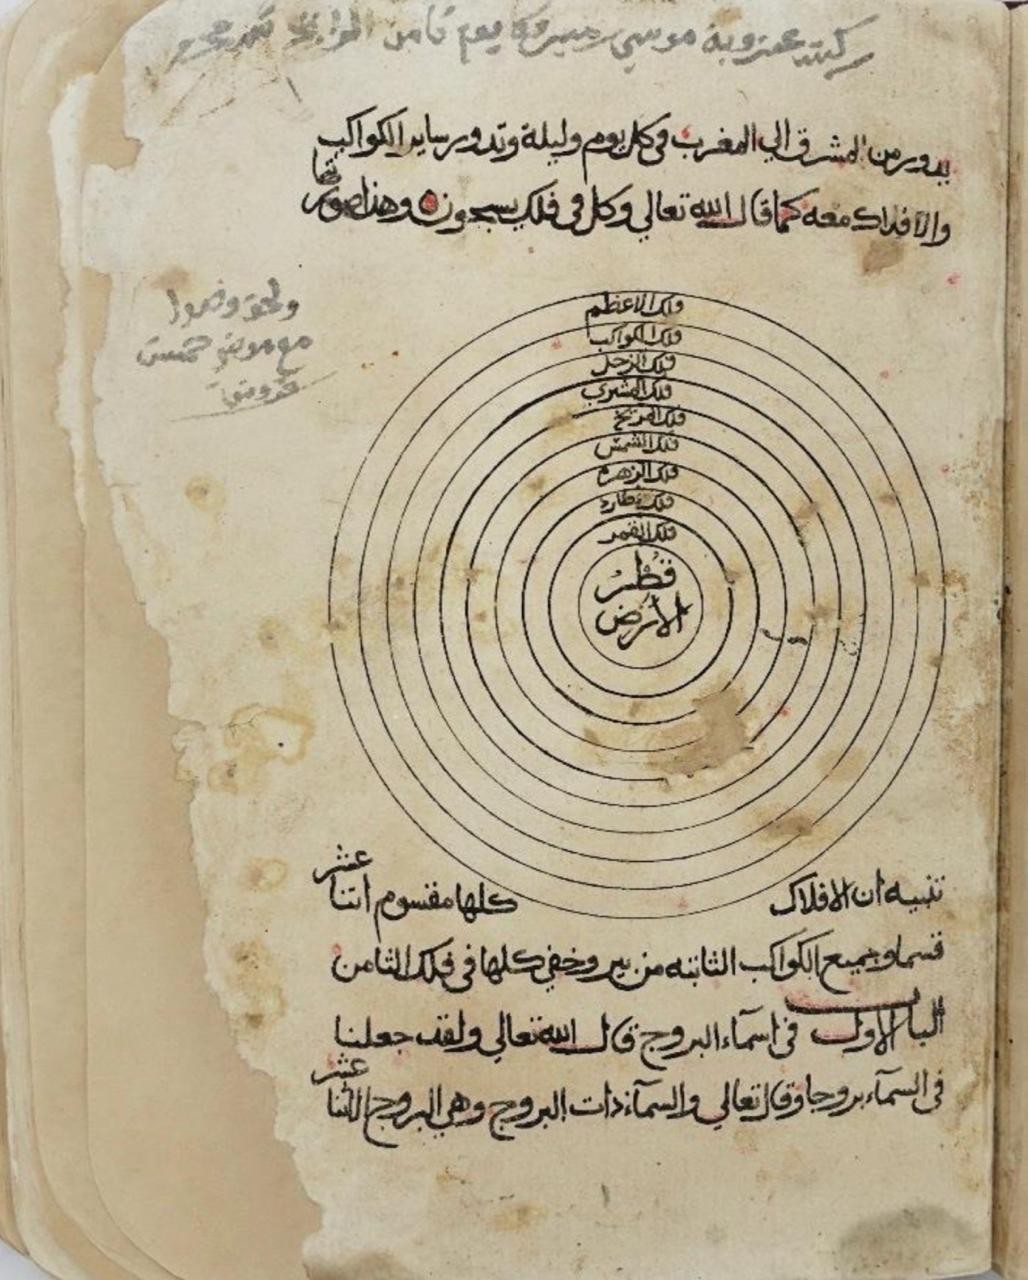 يدور من المشرق الي المغرب في كل يوم وليلة وتدور ساير الكواكب
والافلاك معه كما قال الله تعالي وكل في فلك يسبحون وهذا صورتها
فلك الاعظم
فلك الكواكب
فلك الزحل
فلك المشتري
فلك المريخ
فلك الشمس
فلك الزهره
فلك عطارد
فلك القمر
قطر
الارض
تنبيه ان الافلاك كلها مقسوم اتنا عشر
قسما وجميع الكواكب الثابته من بير وخفي كلها في فلك الثامن
الباب الاول في اسمآء البروج قال الله تعالي ولقد جعلنا
في السمآء بروجا وقال تعالي والسمآء ذات البروج وهي البروج الاثنا عشر